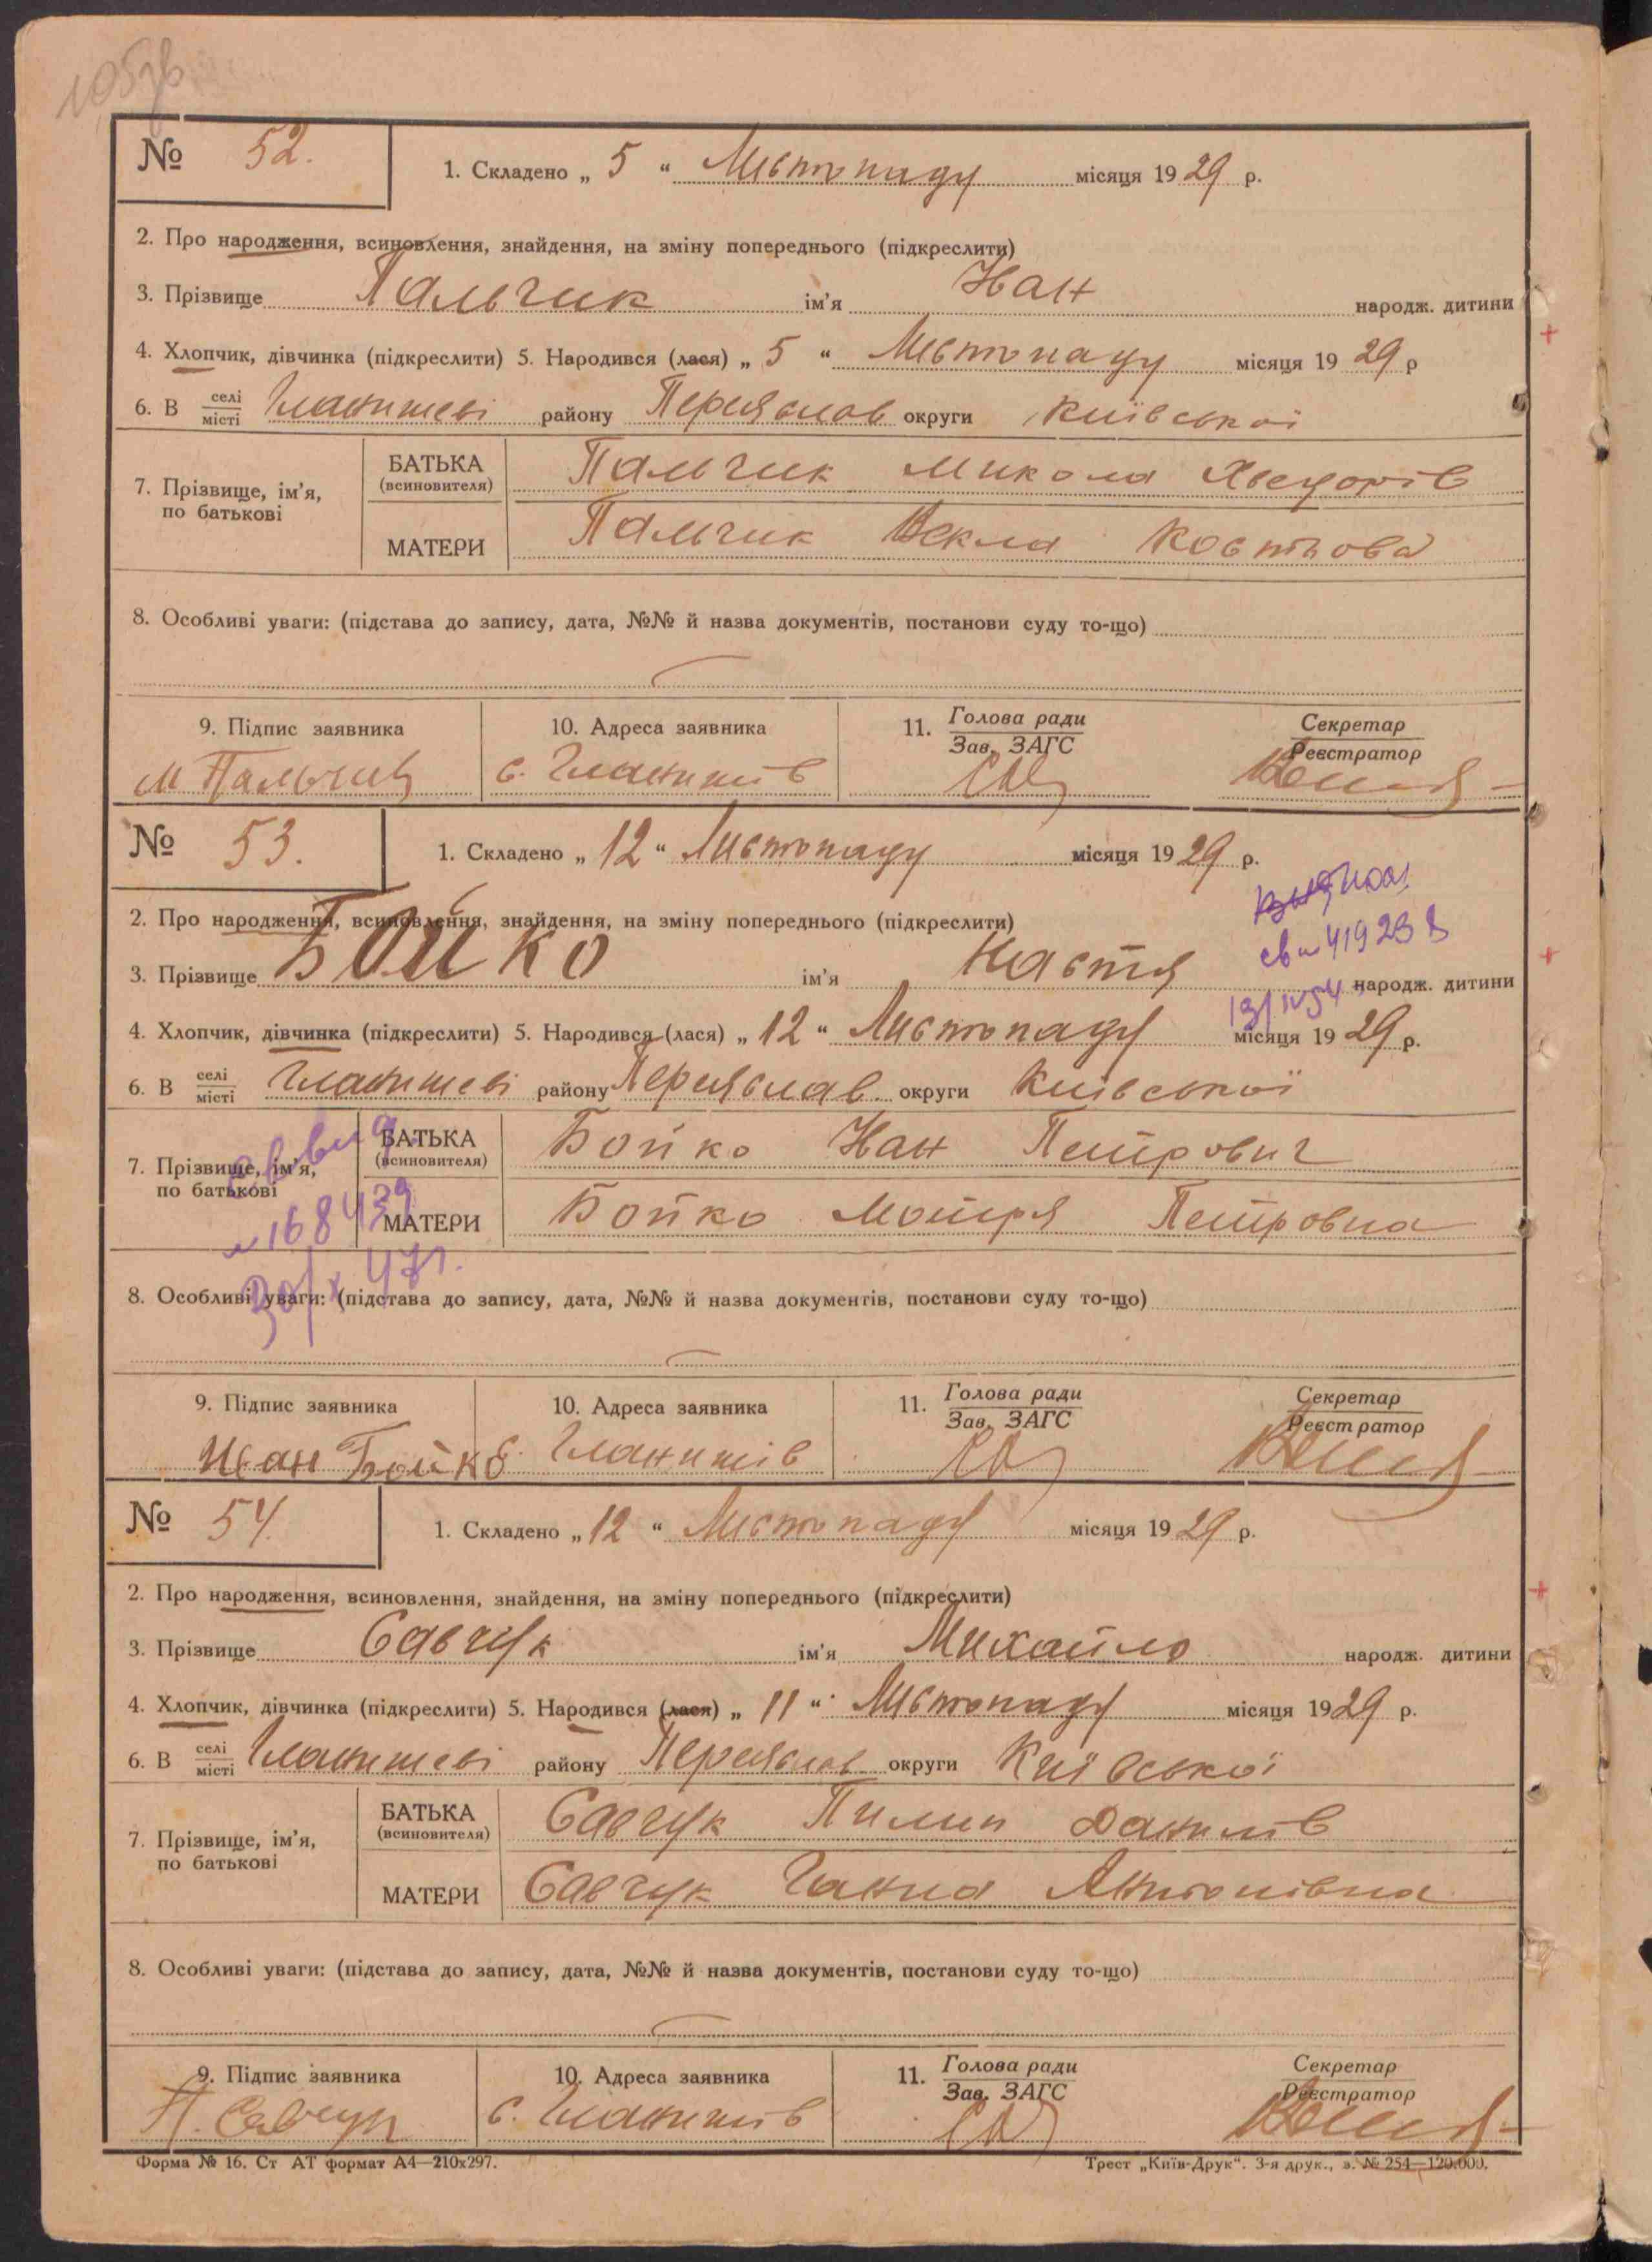 105зв
№ 52. 1. Складено „ 5 “ Листопаду місяця 1929 р.
2. Про народження, всиновлення, знайдення, на зміну попереднього (підкреслити)
3. Прізвище Пальчик ім'я Йван народж. дитини
4. Хлопчик, дівчинка (підкреслити) 5. Народився (лася) „ 5 “ Листопаду місяця 1929 р
6. В селі/місті Гланишеві району Переяслав округи Київської
7. Прізвище, ім'я, по батькові
БАТЬКА (всиновителя) Пальчик Микола Хведорів
МАТЕРИ Пальчик Векла Костьова
8. Особливі уваги: (підстава до запису, дата, №№ й назва документів, постанови суду то-що)
9. Підпис заявника 10. Адреса заявника 11. Голова ради/Зав. ЗАГС Секретар/Реєстратор
М Пальчик с. Гланишів
№ 53. 1. Складено „ 12 “ Листопаду місяця 1929 р.
2. Про народження, всиновлення, знайдення, на зміну попереднього (підкреслити)
св № 419238
3. Прізвище Бойко ім'я Настя народж. дитини
13/IV 54
4. Хлопчик, дівчинка (підкреслити) 5. Народився (лася) „ 12 “ Листопаду місяця 1929 р.
6. В селі/місті Гланишеві району Переяслав. округи Київської
7. Прізвище, ім'я, по батькові
БАТЬКА (всиновителя) Бойко Йван Петрович
№168439
МАТЕРИ Бойко Мотря Петровна
30/X 47г.
8. Особливі уваги: (підстава до запису, дата, №№ й назва документів, постанови суду то-що)
9. Підпис заявника 10. Адреса заявника 11. Голова ради/Зав. ЗАГС Секретар/Реєстратор
Иван Бойко с. Гланишів
№ 54. 1. Складено „ 12 “ Листопаду місяця 1929 р.
2. Про народження, всиновлення, знайдення, на зміну попереднього (підкреслити)
3. Прізвище Савчук ім'я Михайло народж. дитини
4. Хлопчик, дівчинка (підкреслити) 5. Народився (лася) „ 11 “ Листопаду місяця 1929 р.
6. В селі/місті Гланишеві району Переяслав округи Київської
7. Прізвище, ім'я, по батькові
БАТЬКА (всиновителя) Савчук Пилип Данилів
МАТЕРИ Савчук Ганна Антонівна
8. Особливі уваги: (підстава до запису, дата, №№ й назва документів, постанови суду то-що)
9. Підпис заявника 10. Адреса заявника 11. Голова ради/Зав. ЗАГС Секретар/Реєстратор
П. Савчук с. Гланишів
Форма № 16. Ст АТ формат А4—210x297. Трест „Київ-Друк“. 3-я друк., з. № 254—120.000.